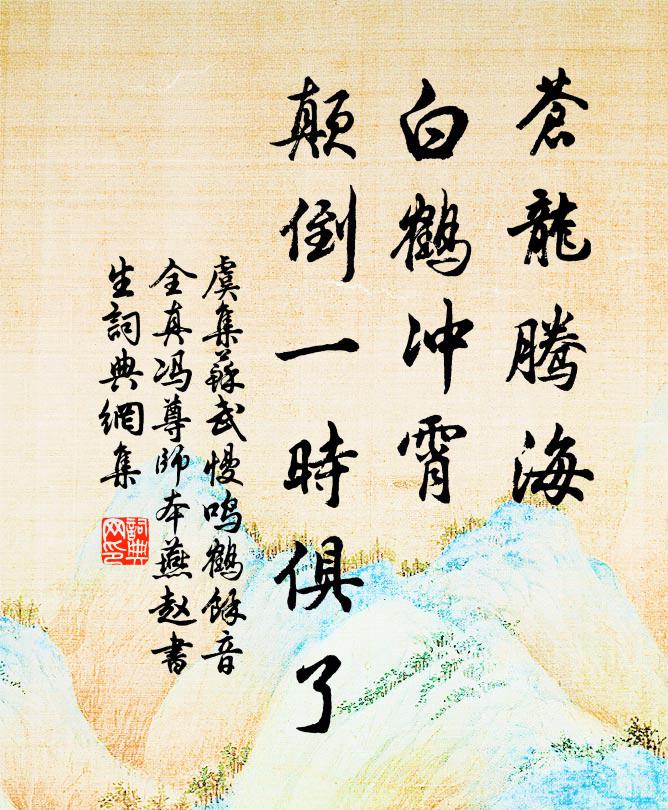 蒼龍騰海
白鶴冲霄
颠倒一時俱了
虞集蘇武慢鸣鶴餘音
全真冯尊師本燕赵書
生詞典網集
詞典
网印